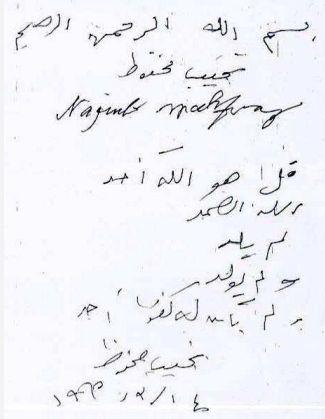 بسم الله الرحمن الرحيم
نجيب محفوظ
Naguib Mahfouz
قل هو الله أحد
الله الصمد
لم يلد
ولم يولد
ولم يكن له كفوا أحد
نجيب محفوظ